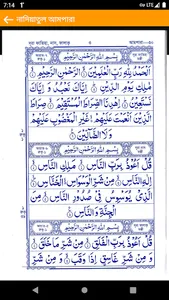 7:14
LTE
নাদিয়াতুল আমপারা
সুরা ফাতিহা, নাস, ফালাক্ব
بِسْمِ اللّٰهِ الرَّحْمٰنِ الرَّحِيْمِ
اَلْحَمْدُ لِلّٰهِ رَبِّ الْعٰلَمِيْنَ ۝ الرَّحْمٰنِ الرَّحِيْمِ ۝
مٰلِكِ يَوْمِ الدِّيْنِ ۝ اِيَّاكَ نَعْبُدُ وَاِيَّاكَ
نَسْتَعِيْنُ ۝ اِهْدِنَا الصِّرَاطَ الْمُسْتَقِيْمَ ۝ صِرَاطَ
الَّذِيْنَ اَنْعَمْتَ عَلَيْهِمْ غَيْرِ الْمَغْضُوْبِ عَلَيْهِمْ
وَلَا الضَّآلِّيْنَ ۝
بِسْمِ اللّٰهِ الرَّحْمٰنِ الرَّحِيْمِ
قُلْ اَعُوْذُ بِرَبِّ النَّاسِ ۝ مَلِكِ النَّاسِ ۝
اِلٰهِ النَّاسِ ۝ مِنْ شَرِّ الْوَسْوَاسِ الْخَنَّاسِ ۝
الَّذِيْ يُوَسْوِسُ فِيْ صُدُوْرِ النَّاسِ ۝ مِنَ
الْجِنَّةِ وَالنَّاسِ ۝
بِسْمِ اللّٰهِ الرَّحْمٰنِ الرَّحِيْمِ
قُلْ اَعُوْذُ بِرَبِّ الْفَلَقِ ۝ مِنْ شَرِّ مَا خَلَقَ ۝
وَمِنْ شَرِّ غَاسِقٍ اِذَا وَقَبَ ۝ وَمِنْ شَرِّ